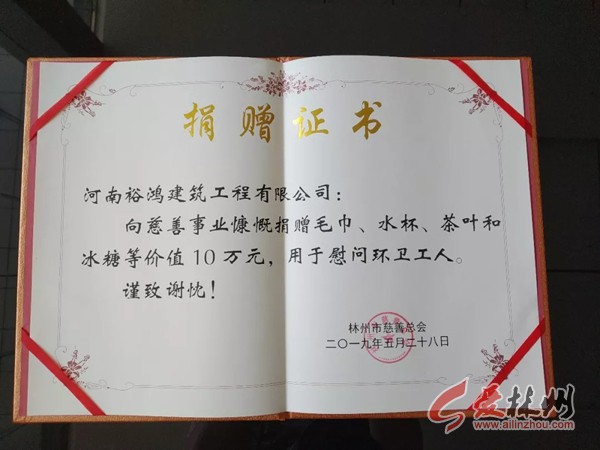 捐赠证书
河南裕鸿建筑工程有限公司：
向慈善事业慷慨捐赠毛巾、水杯、茶叶和
冰糖等价值10万元，用于慰问环卫工人。
谨致谢忱！
林州市慈善总会
二〇一九年五月二十八日
爱林州
www.ailinzhou.com